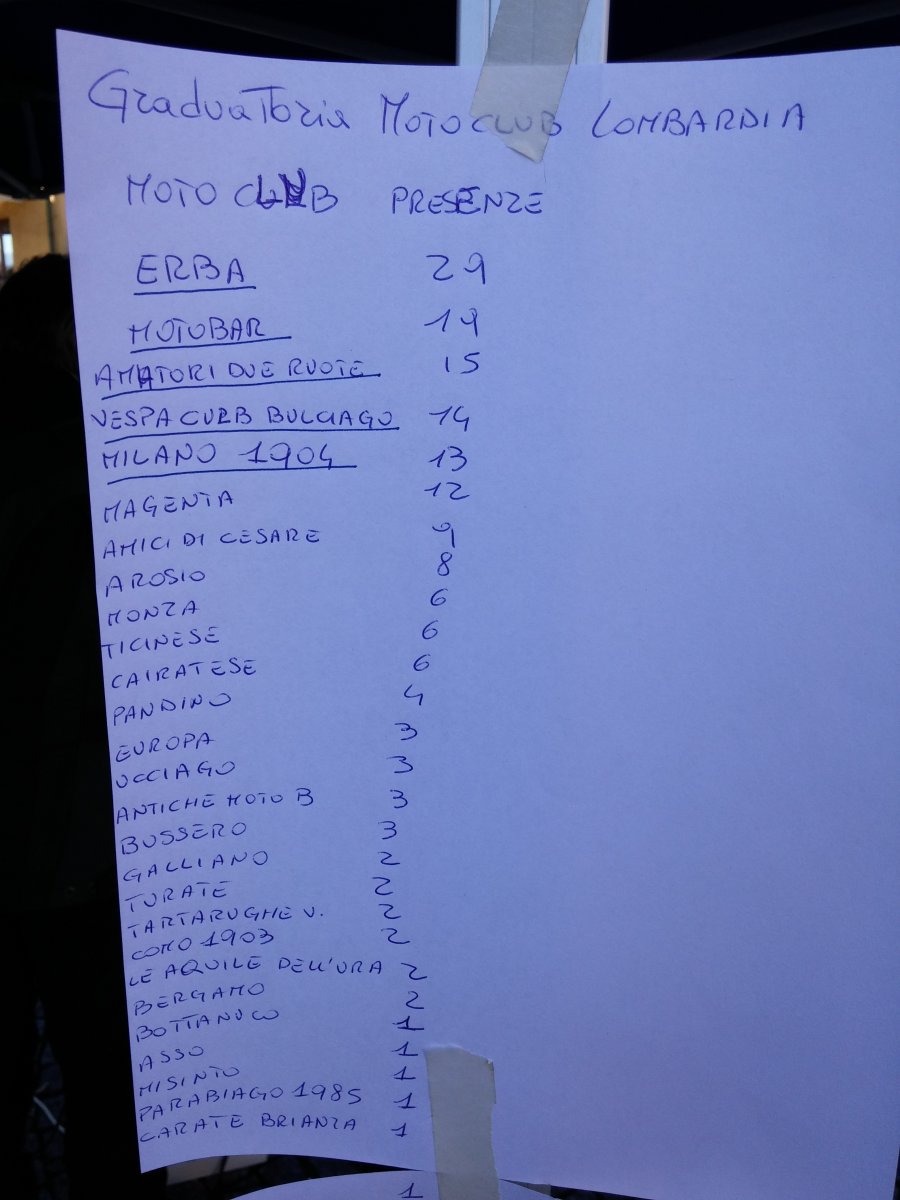 Graduatoria MOTOCLUB LOMBARDIA
MOTO CLUB PRESENZE
ERBA 29
MOTOBAR 19
AMATORI DUE RUOTE 15
VESPA CULB BULCIAGO 14
MILANO 1904 13
MAGENTA 12
AMICI DI CESARE 9
AROSIO 8
MONZA 6
TICINESE 6
CAIRATESE 6
PANDINO 4
EUROPA 3
UCCIAGO 3
ANTICHE MOTO B 3
BUSSERO 3
GALLIANO 2
TURATE 2
TARTARUGHE V. 2
COMO 1903 2
LE AQUILE DELL'URA 2
BERGAMO 2
BOTTANUCO 1
ASSO 1
MISINTO 1
PARABIAGO 1985 1
CARATE BRIANZA 1
1